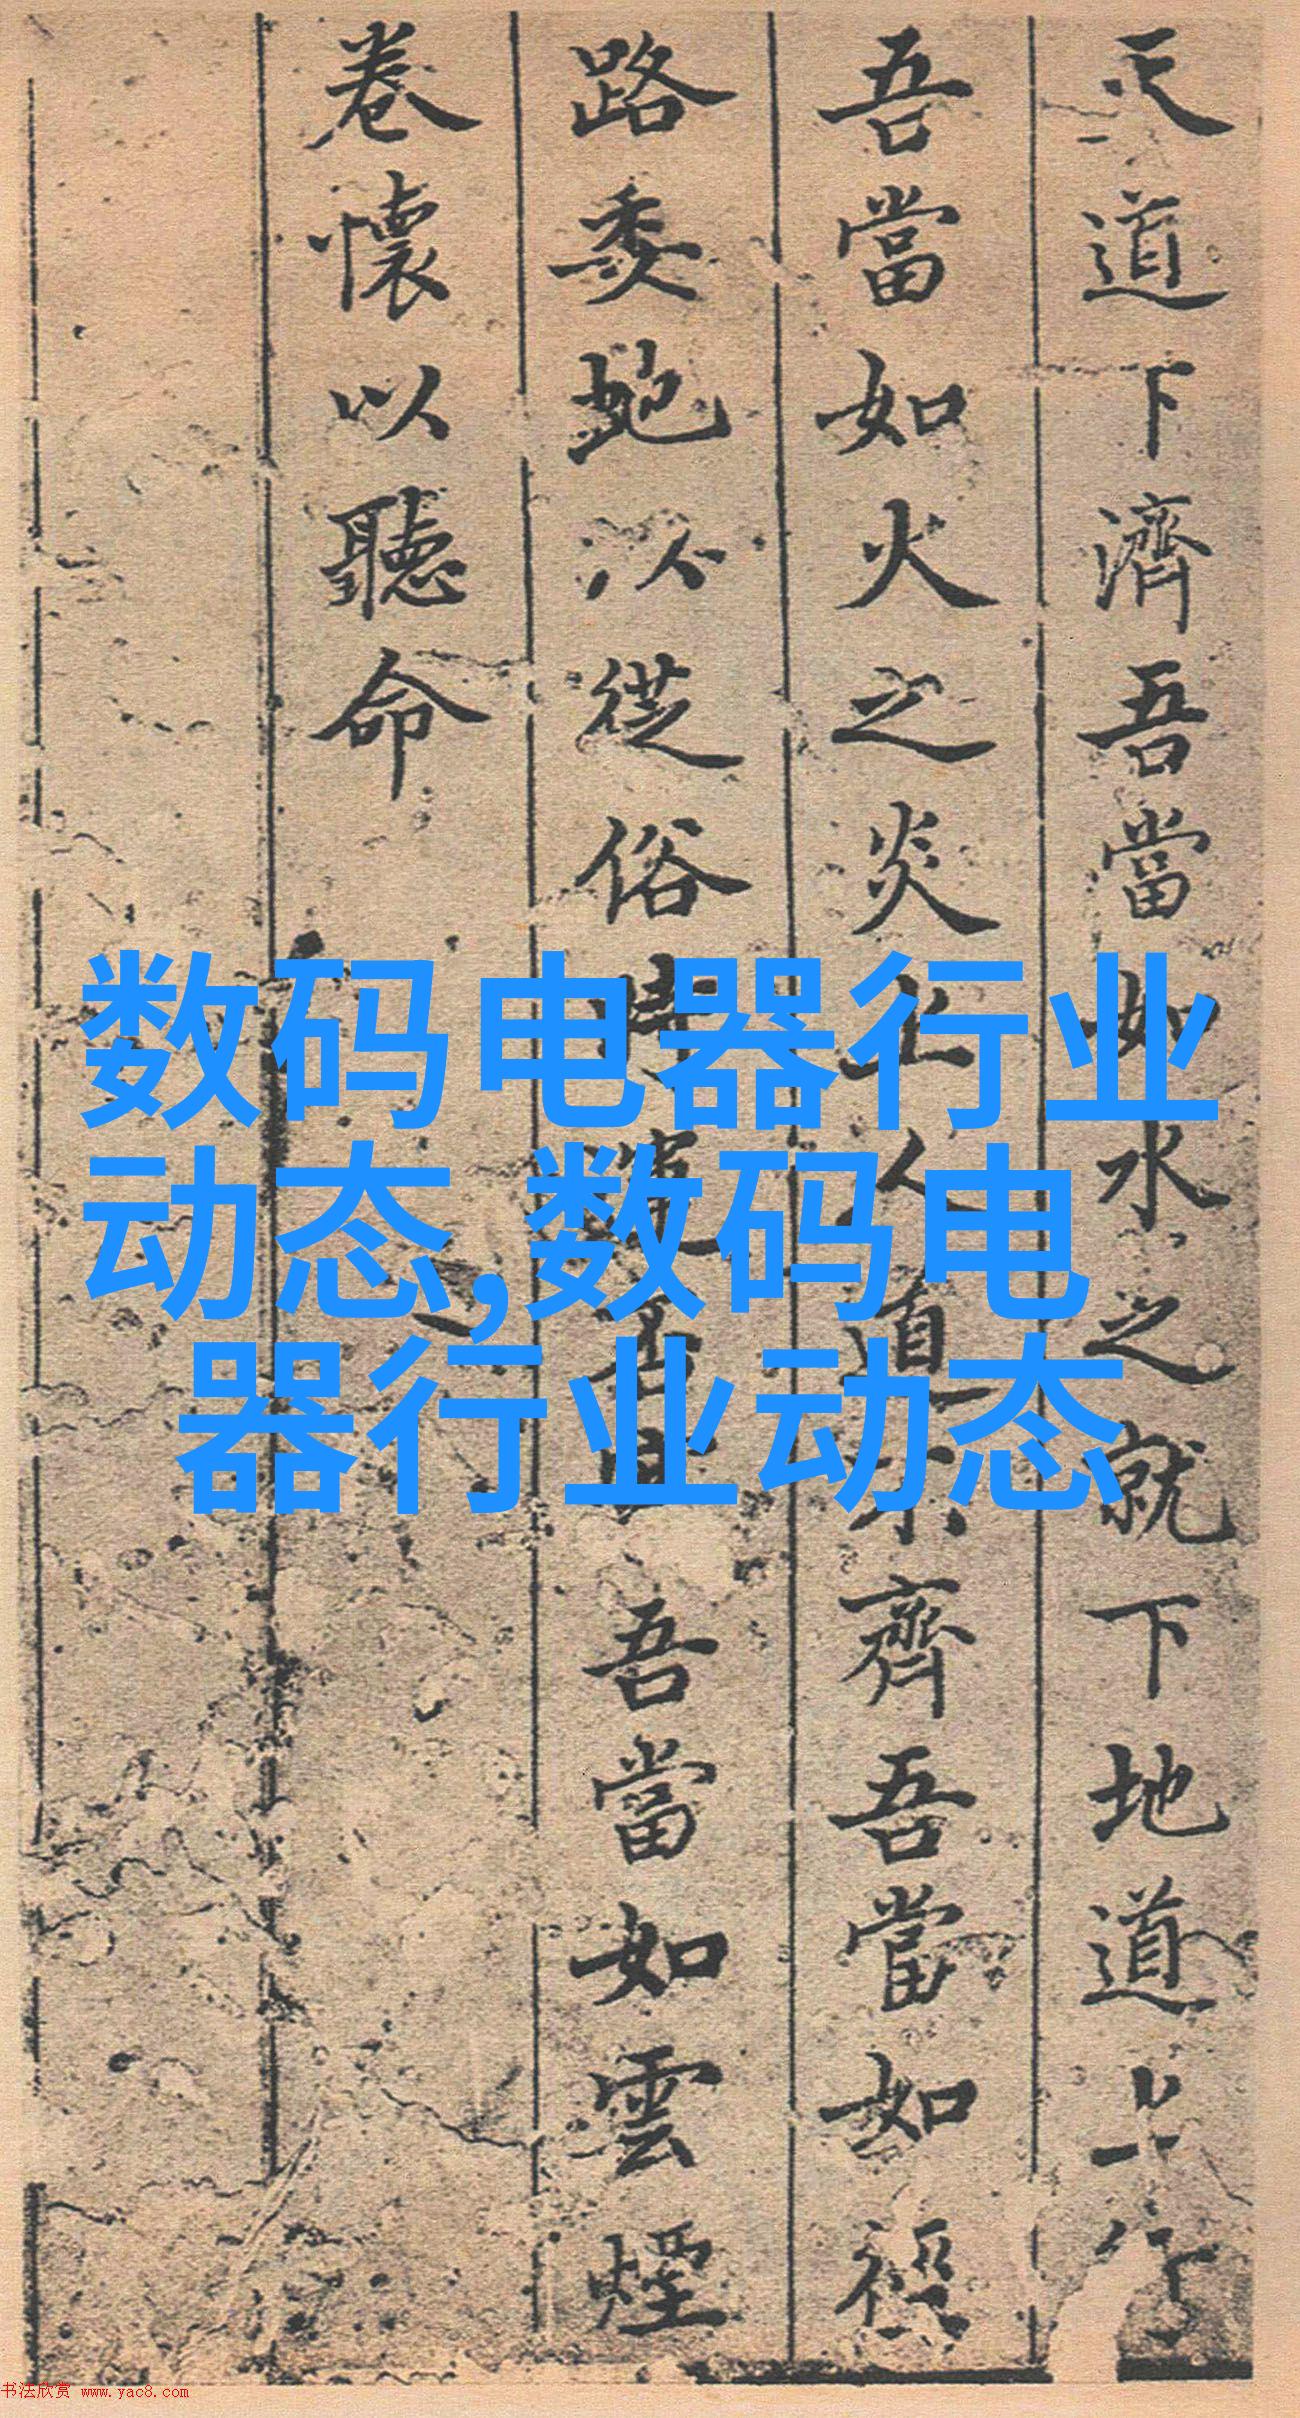 天道下濟吾當如水之就下地道上行
吾當如火之炎上人道不齊吾當如徑
路委蛇以從俗時 吾 吾當如雲煙
卷懷以聽命
数码电器行业
动态,数码电
器行业动态
书法欣赏 www.yac8.com